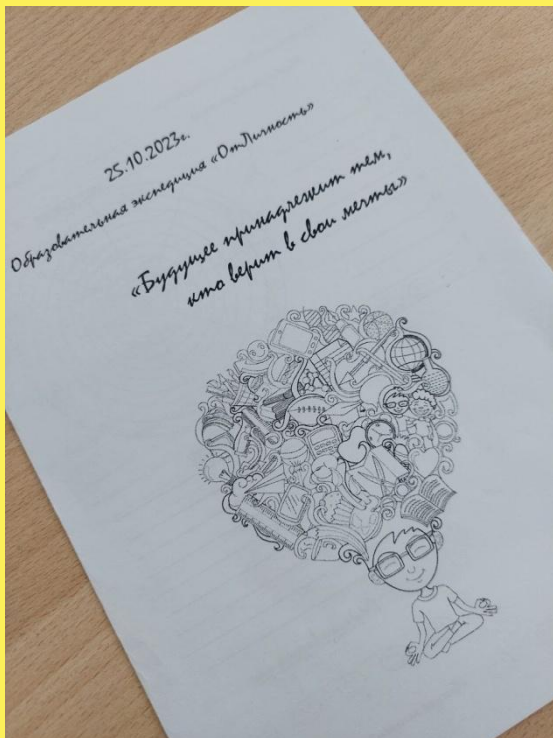 25.10.2023г.
Образовательная экспедиция «ОтЛичность»
«Будущее принадлежит тем,
кто верит в свои мечты»